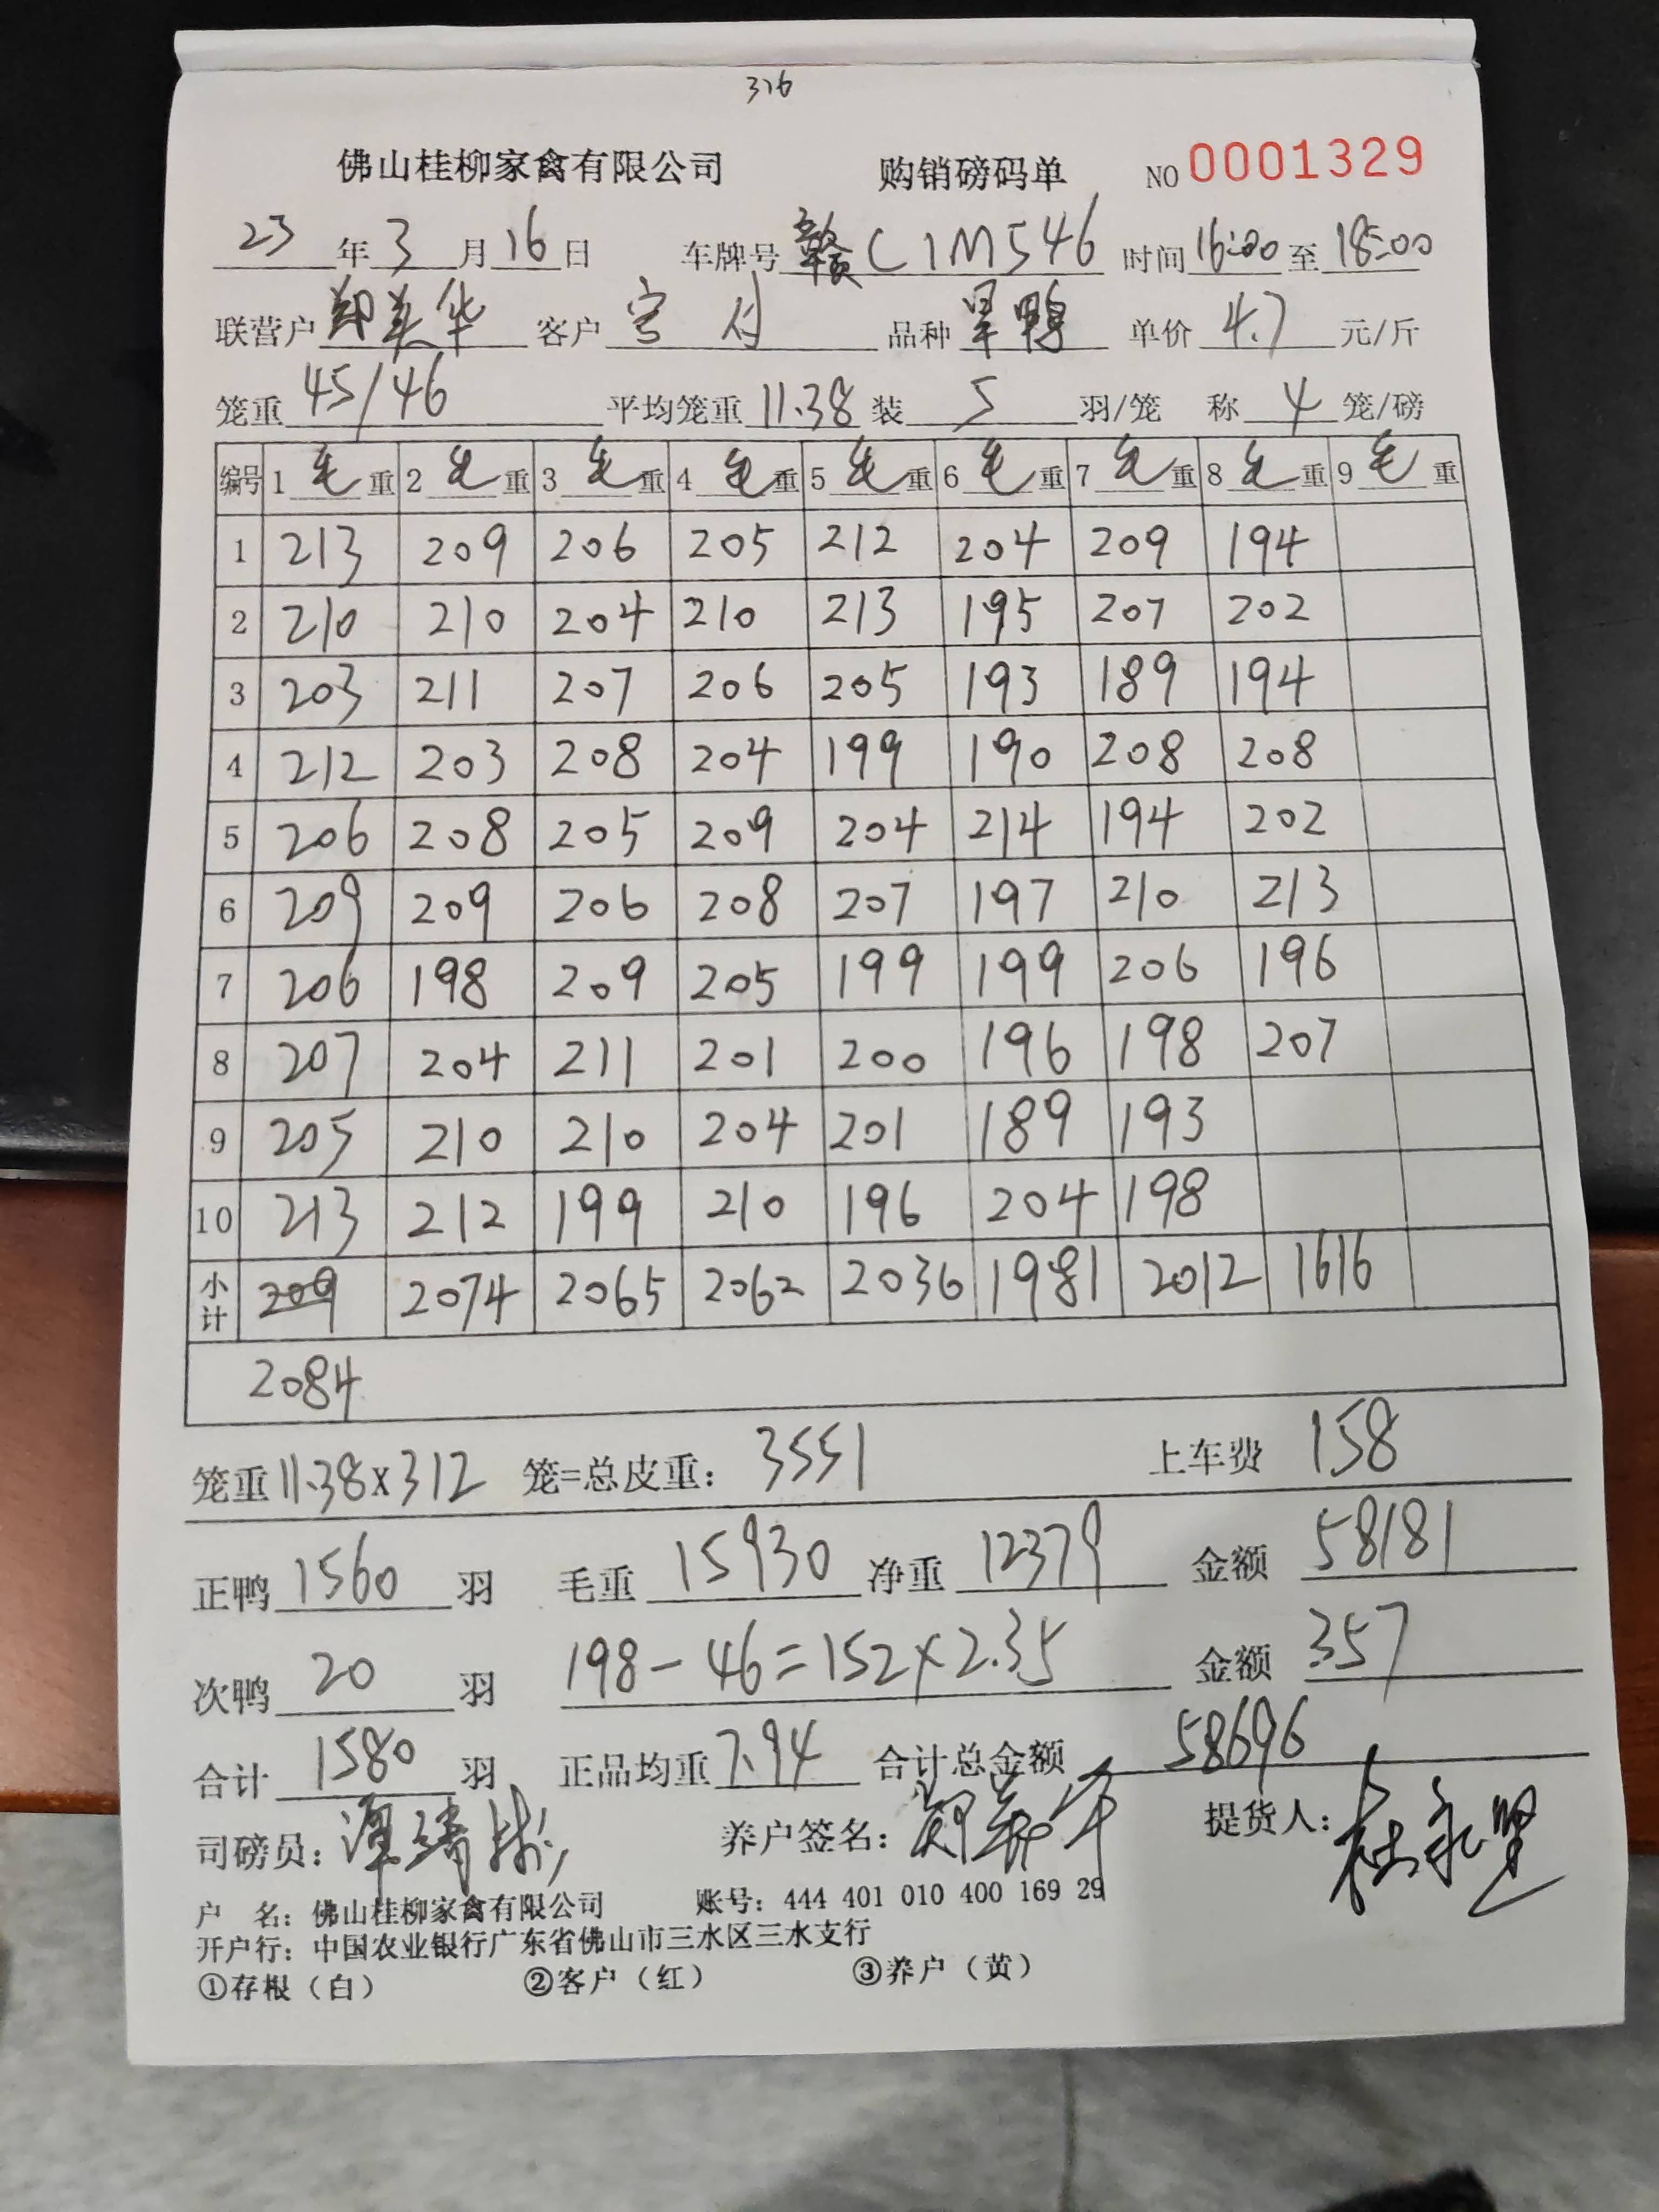 316
佛山桂柳家禽有限公司 购销磅码单 NO 0001329
23年3月16日 车牌号 赣C1M546 时间16:00至18:00
联营户 郑美华 客户 客付 品种 旱鸭 单价 4.7 元/斤
笼重 45/46 平均笼重 11.38 装 5 羽/笼 称 4 笼/磅
编号 1毛重 2毛重 3毛重 4毛重 5毛重 6毛重 7毛重 8毛重 9毛重
1 213 209 206 205 212 204 209 194
2 210 210 204 210 213 195 207 202
3 203 211 207 206 205 193 189 194
4 212 203 208 204 199 190 208 208
5 206 208 205 209 204 214 194 202
6 209 209 206 208 207 197 210 213
7 206 198 209 205 199 199 206 196
8 207 204 211 201 200 196 198 207
9 205 210 210 204 201 189 193
10 213 212 199 210 196 204 198
小计 209 2074 2065 2062 2036 1981 2012 1616
2084
笼重11.38x312 笼=总皮重: 3551 上车费 158
正鸭 1560 羽 毛重 15930 净重 12379 金额 58181
次鸭 20 羽 198-46=152x2.35 金额 357
合计 1580 羽 正品均重 7.94 合计总金额 58696
司磅员: 养户签名: 提货人:
户 名: 佛山桂柳家禽有限公司 账号: 444 401 010 400 169 29
开户行: 中国农业银行广东省佛山市三水区三水支行
①存根(白) ②客户(红) ③养户(黄)